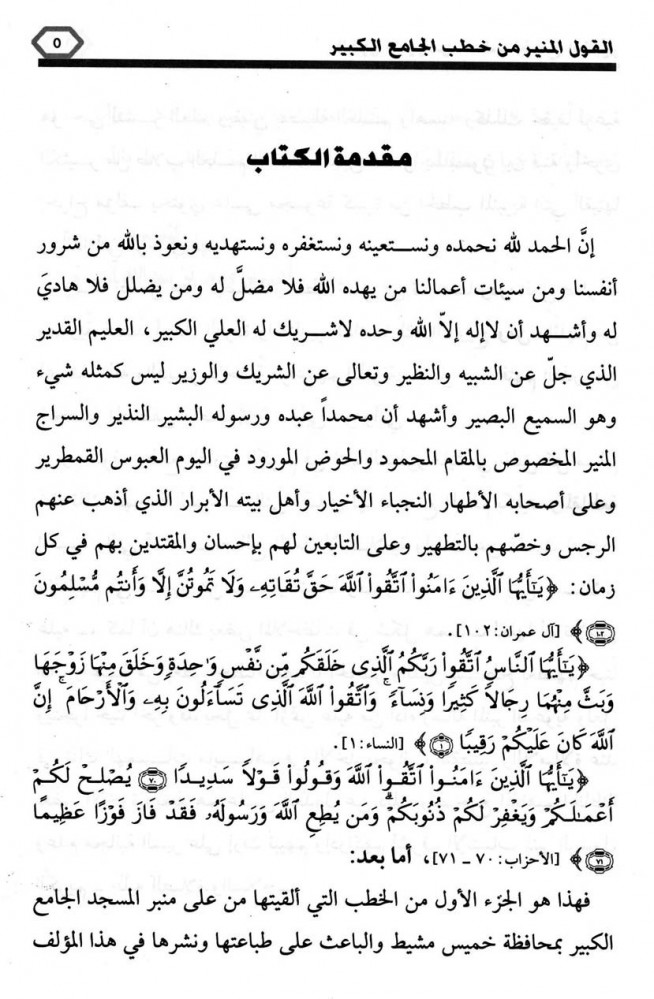 القول المنير من خطب الجامع الكبير
٥
مقدمة الكتاب
إنَّ الحمد لله نحمده ونستعينه ونستغفره ونستهديه ونعوذ بالله من شرور
أنفسنا ومن سيئات أعمالنا من يهده الله فلا مضلَّ له ومن يضلل فلا هاديَ
له وأشهد أن لاإله إلاّ الله وحده لاشريك له العلي الكبير، العليم القدير
الذي جلّ عن الشبيه والنظير وتعالى عن الشريك والوزير ليس كمثله شيء
وهو السميع البصير وأشهد أن محمداً عبده ورسوله البشير النذير والسراج
المنير المخصوص بالمقام المحمود والحوض المورود في اليوم العبوس القمطرير
وعلى أصحابه الأطهار النجباء الأخيار وأهل بيته الأبرار الذي أذهب عنهم
الرجس وخصّهم بالتطهير وعلى التابعين لهم بإحسان والمقتدين بهم في كل
زمان: ﴿يَٰٓأَيُّهَا ٱلَّذِينَ ءَامَنُوا۟ ٱتَّقُوا۟ ٱللَّهَ حَقَّ تُقَاتِهِۦ وَلَا تَمُوتُنَّ إِلَّا وَأَنتُم مُّسْلِمُونَ
١٠٢﴾ [آل عمران: ١٠٢].
﴿يَٰٓأَيُّهَا ٱلنَّاسُ ٱتَّقُوا۟ رَبَّكُمُ ٱلَّذِى خَلَقَكُم مِّن نَّفْسٍ وَٰحِدَةٍ وَخَلَقَ مِنْهَا زَوْجَهَا
وَبَثَّ مِنْهُمَا رِجَالًا كَثِيرًا وَنِسَآءً ۚ وَٱتَّقُوا۟ ٱللَّهَ ٱلَّذِى تَسَآءَلُونَ بِهِۦ وَٱلْأَرْحَامَ ۚ إِنَّ
ٱللَّهَ كَانَ عَلَيْكُمْ رَقِيبًا ١﴾ [النساء: ١].
﴿يَٰٓأَيُّهَا ٱلَّذِينَ ءَامَنُوا۟ ٱتَّقُوا۟ ٱللَّهَ وَقُولُوا۟ قَوْلًا سَدِيدًا ٧٠ يُصْلِحْ لَكُمْ
أَعْمَٰلَكُمْ وَيَغْفِرْ لَكُمْ ذُنُوبَكُمْ ۗ وَمَن يُطِعِ ٱللَّهَ وَرَسُولَهُۥ فَقَدْ فَازَ فَوْزًا عَظِيمًا
٧١﴾ [الأحزاب: ٧٠ ـ ٧١]، أما بعد:
فهذا هو الجزء الأول من الخطب التي ألقيتها من على منبر المسجد الجامع
الكبير بمحافظة خميس مشيط والباعث على طباعتها ونشرها في هذا المؤلف